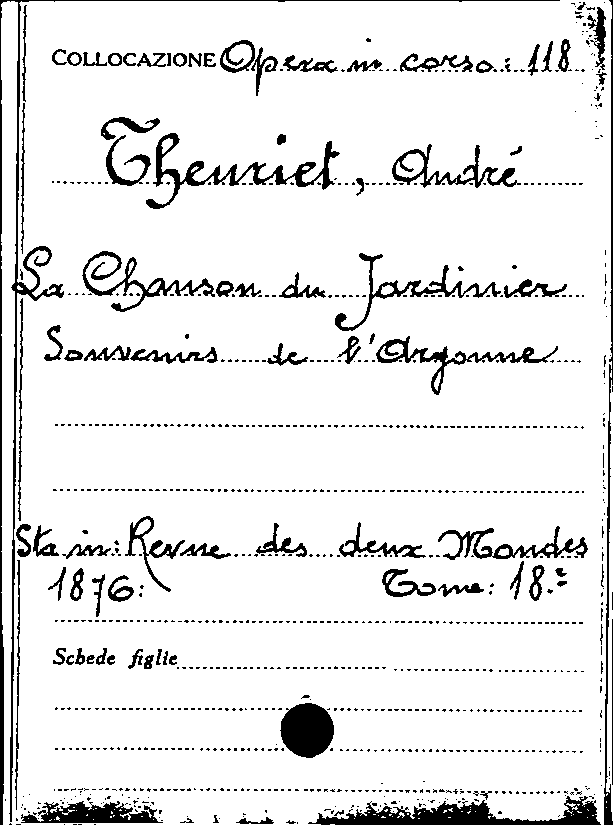 COLLOCAZIONE Opera in corso: 118
Theuriet, André
La Chanson du Jardinier
Souvenirs de l'Argonne
Sta in: Revue des deux Mondes
1876: Tome: 18.º
Schede figlie